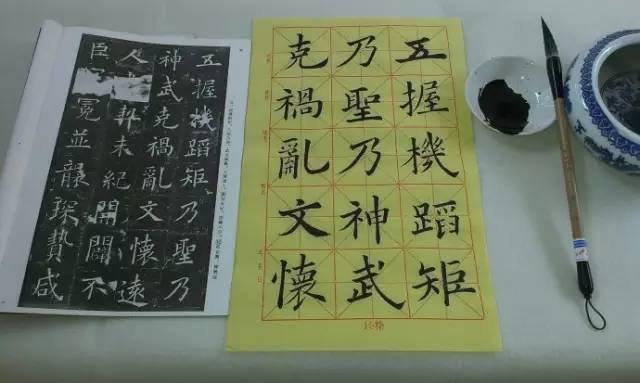 五握機蹈矩乃聖乃
神武克禍亂文懷遠
人未紀開闢不
臣冕並襲琛贄咸
五握機蹈矩
乃聖乃神武
克禍亂文懷